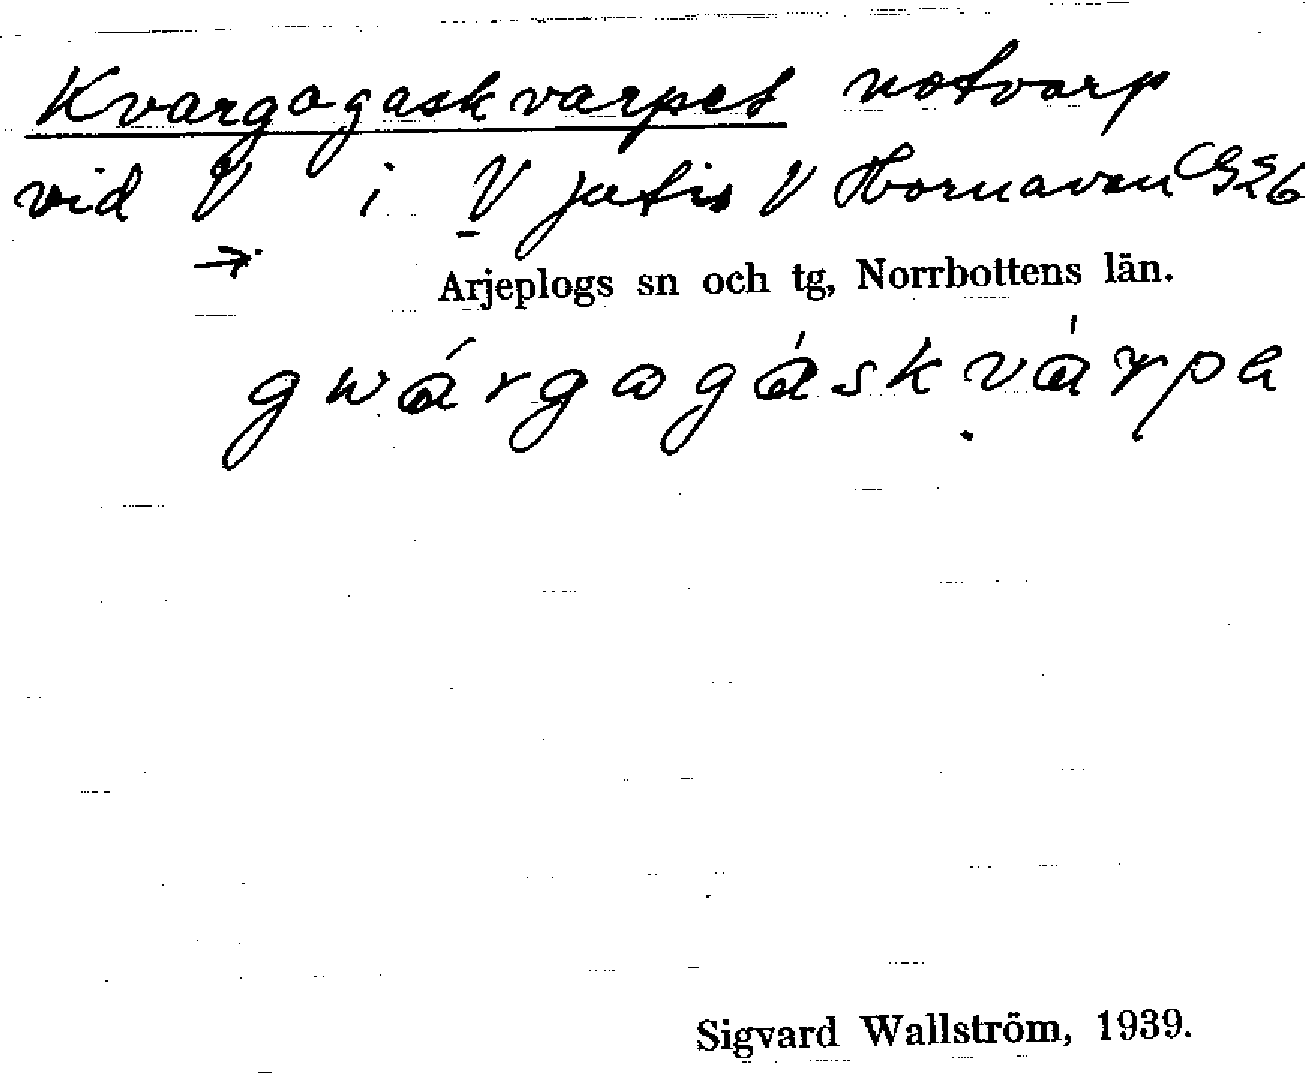 Kvargogaskvarpet notvarp
vid V i V Jutis V Hornavan G26
→
Arjeplogs sn och tg, Norrbottens län.
gwárgogáskvárpa
Sigvard Wallström, 1939.